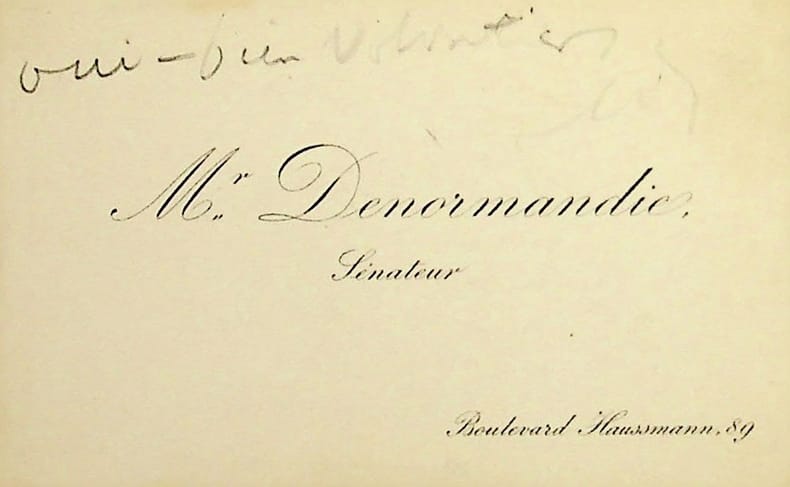 oui - bien volontiers
Mr Denormandie,
Sénateur
Boulevard Haussmann, 89